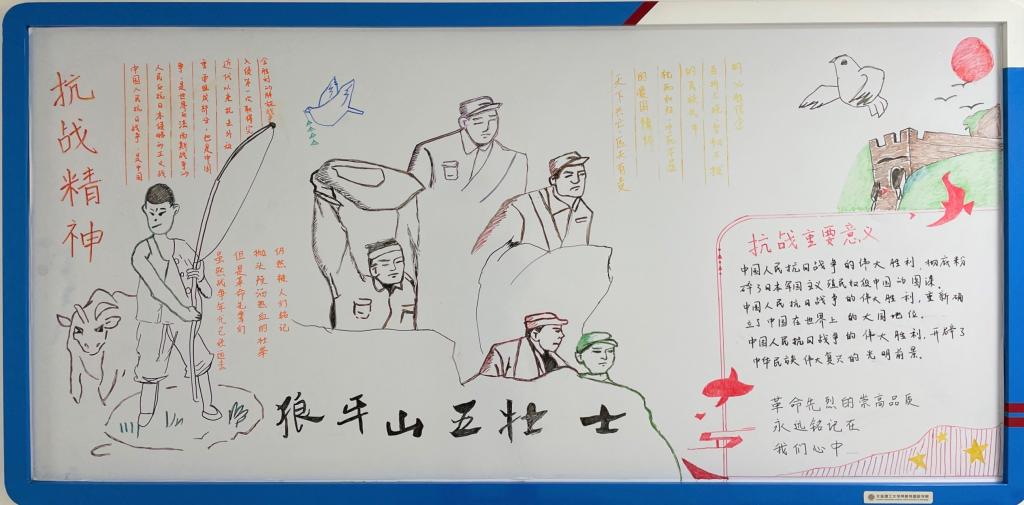 抗战精神
中国人民抗日战争,是中国
人民反抗日本侵略的正义战
争,是世界反法西斯战争的
重要组成部分,也是中国
近代以来抗击外敌
入侵第一次取得完
全胜利的解放战争
虽然战争年代已经远去
但是革命先辈们
抛头颅洒热血的壮举
仍然被人们铭记
天下兴亡匹夫有责
的爱国情怀
视死如归,宁死不屈
的民族气节
百折不挠,坚韧不拔
的必胜信念
狼牙山五壮士
抗战重要意义
中国人民抗日战争的伟大胜利,彻底粉
碎了日本军国主义殖民奴役中国的图谋.
中国人民抗日战争的伟大胜利,重新确
立了中国在世界上的大国地位.
中国人民抗日战争的伟大胜利,开辟了
中华民族伟大复兴的光明前景.
革命先烈的崇高品质
永远铭记在
我们心中...